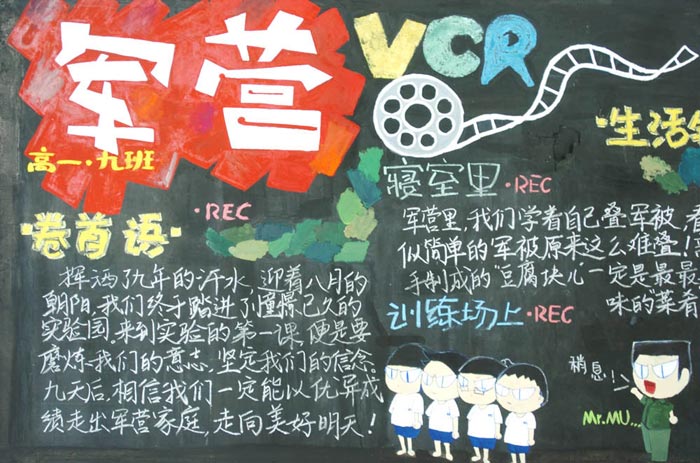 军营
VCR
高一·九班
·生活
寝室里·REC
·REC
卷首语·
军营里,我们学着自己叠军被,看
似简单的军被原来这么难叠!
手制成的"豆腐块儿"一定是最最
味的"菜肴
挥洒了九年的汗水,迎着八月的
朝阳,我们终于踏进了憧憬已久的
实验园,来到实验的第一课,便是要
磨炼我们的意志,坚定我们的信念。
九天后,相信我们一定能以优异成
绩走出军营家庭,走向美好明天!
训练场上·REC
稍息!
Mr.MU...